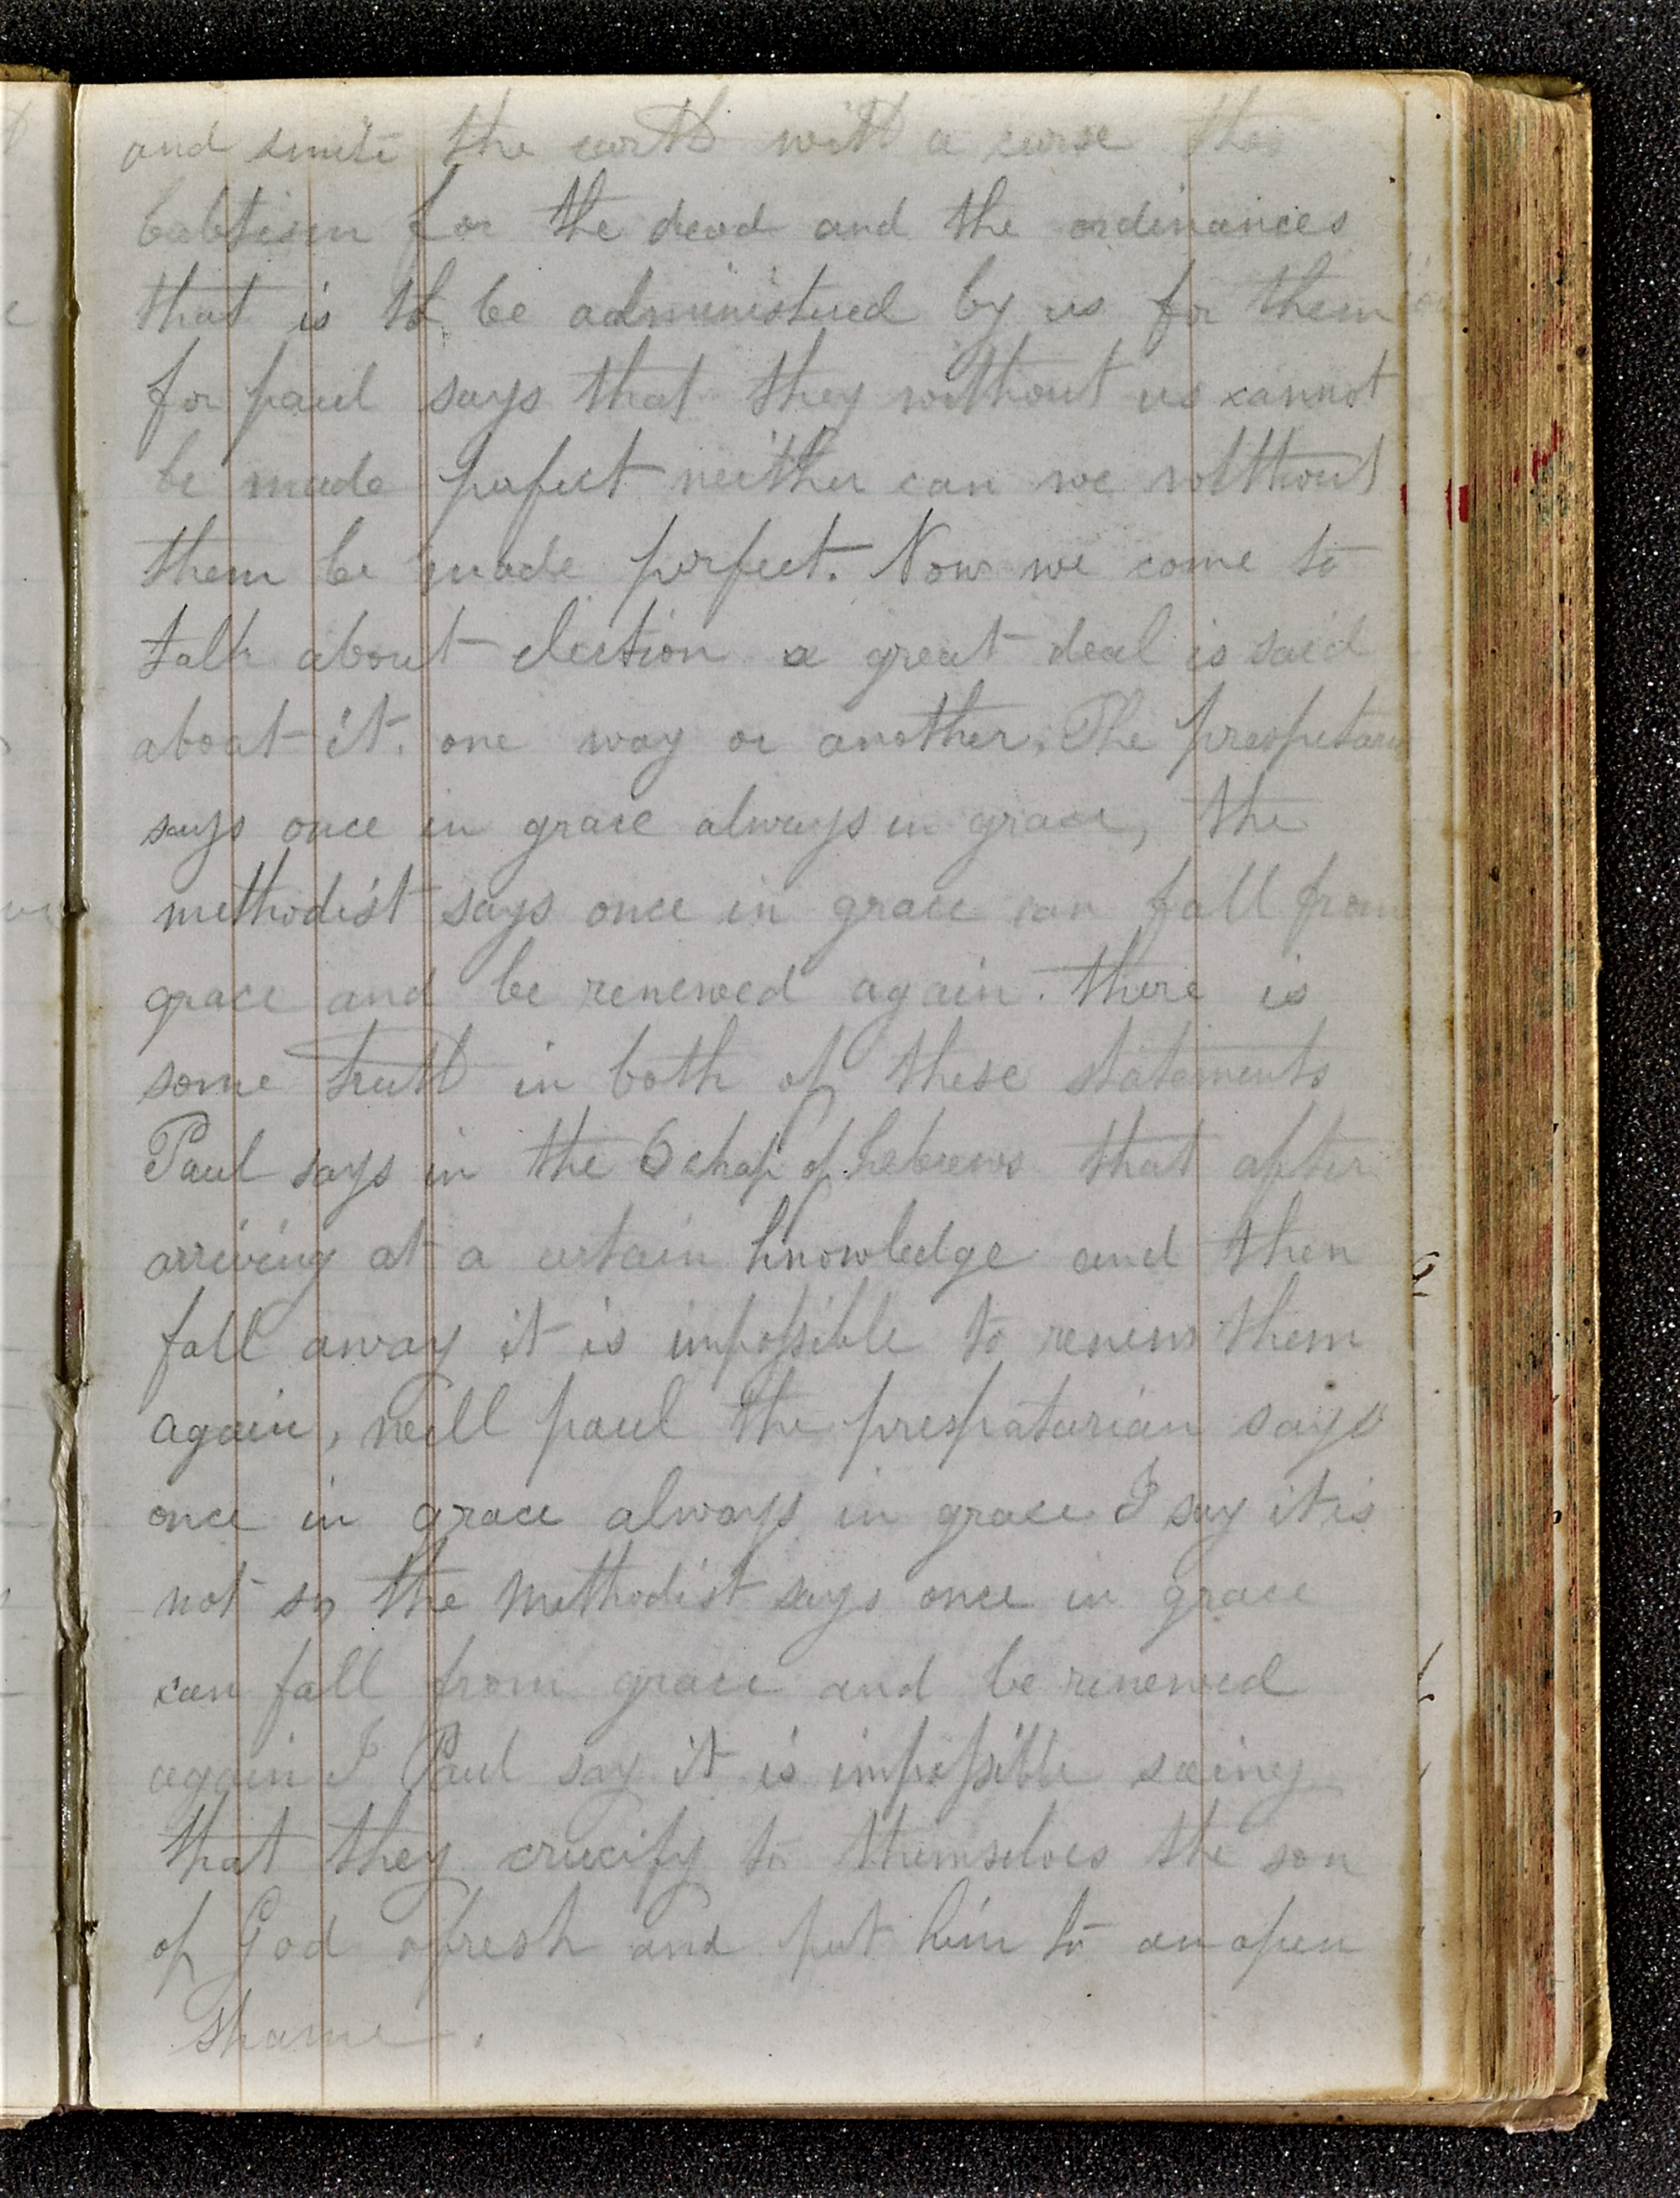 and smite the earth with a curse the
babtism for the dead and the ordinances
that is to be administued by us for them
for paul says that they without us cannot
be made perfect neither can we without
them be made perfect. Now we come to
talk about election a great deal is said
about it. one way or another. The prespetarn
says once in grace always in grace, the
methodist says once in grace can fall from
grace and be renewed again. there is
some truth in both of these statements
Paul says in the 6 chap of hebrews that after
arriving at a certain knowledge and then
fall away it is impossible to renew them
again, well paul the prespatarian says
once in grace always in grace I say it is
not so the Methodist says once in grace
can fall from grace and be renewed
again I Paul say it is impossible seeing
that they crucify to themselves the son
of God afresh and put him to an open
shame.